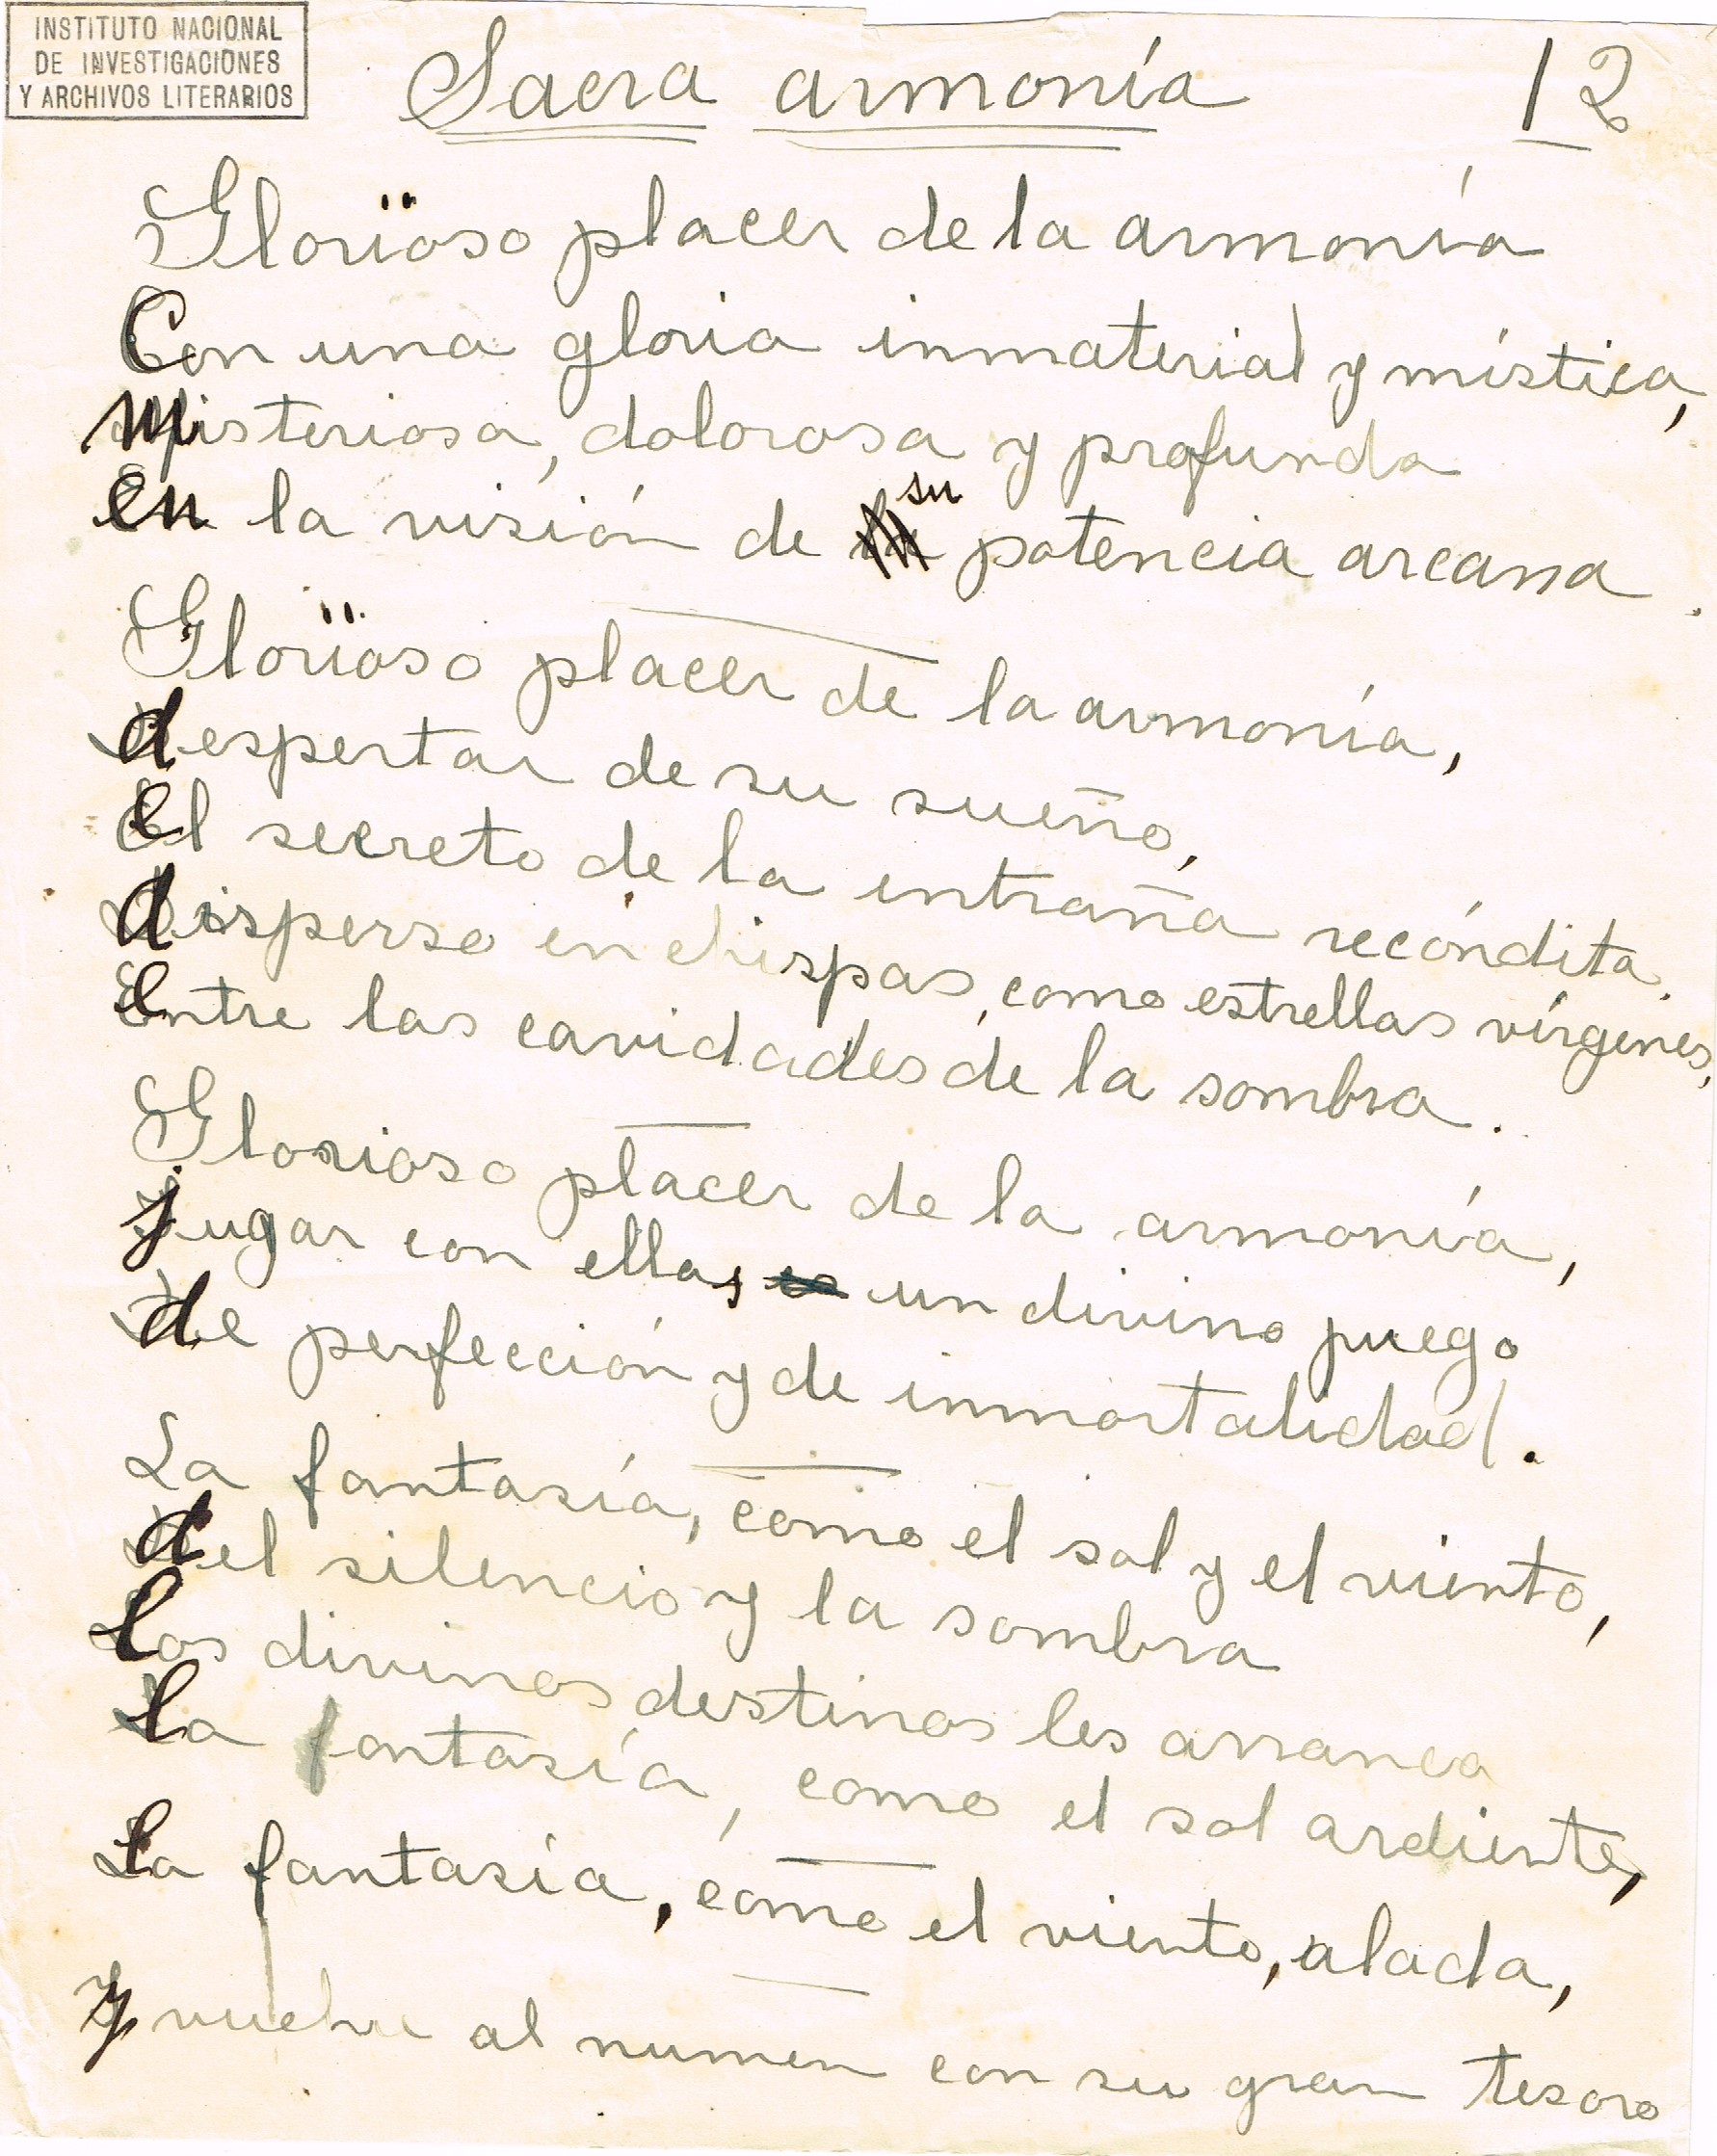 INSTITUTO NACIONAL
DE INVESTIGACIONES
Y ARCHIVOS LITERARIOS
Sacra armonía 12
Glorïoso placer de la armonía
Con una gloria inmaterial y mística,
Misteriosa, dolorosa y profunda
en la visión de su potencia arcana.
Glorïoso placer de la armonía,
despertar de su sueño,
el secreto de la entraña recóndita,
disperso en chispas, como estrellas vírgenes,
entre las cavidades de la sombra.
Glorioso placer de la armonía,
jugar con ellas un divino juego
de perfección y de inmortalidad.
La fantasía, como el sol y el viento,
del silencio y la sombra
los divinos destinos les arranca
la fantasía, como el sol ardiente,
la fantasía, como el viento, alada,
y vuelve al numen con su gran tesoro